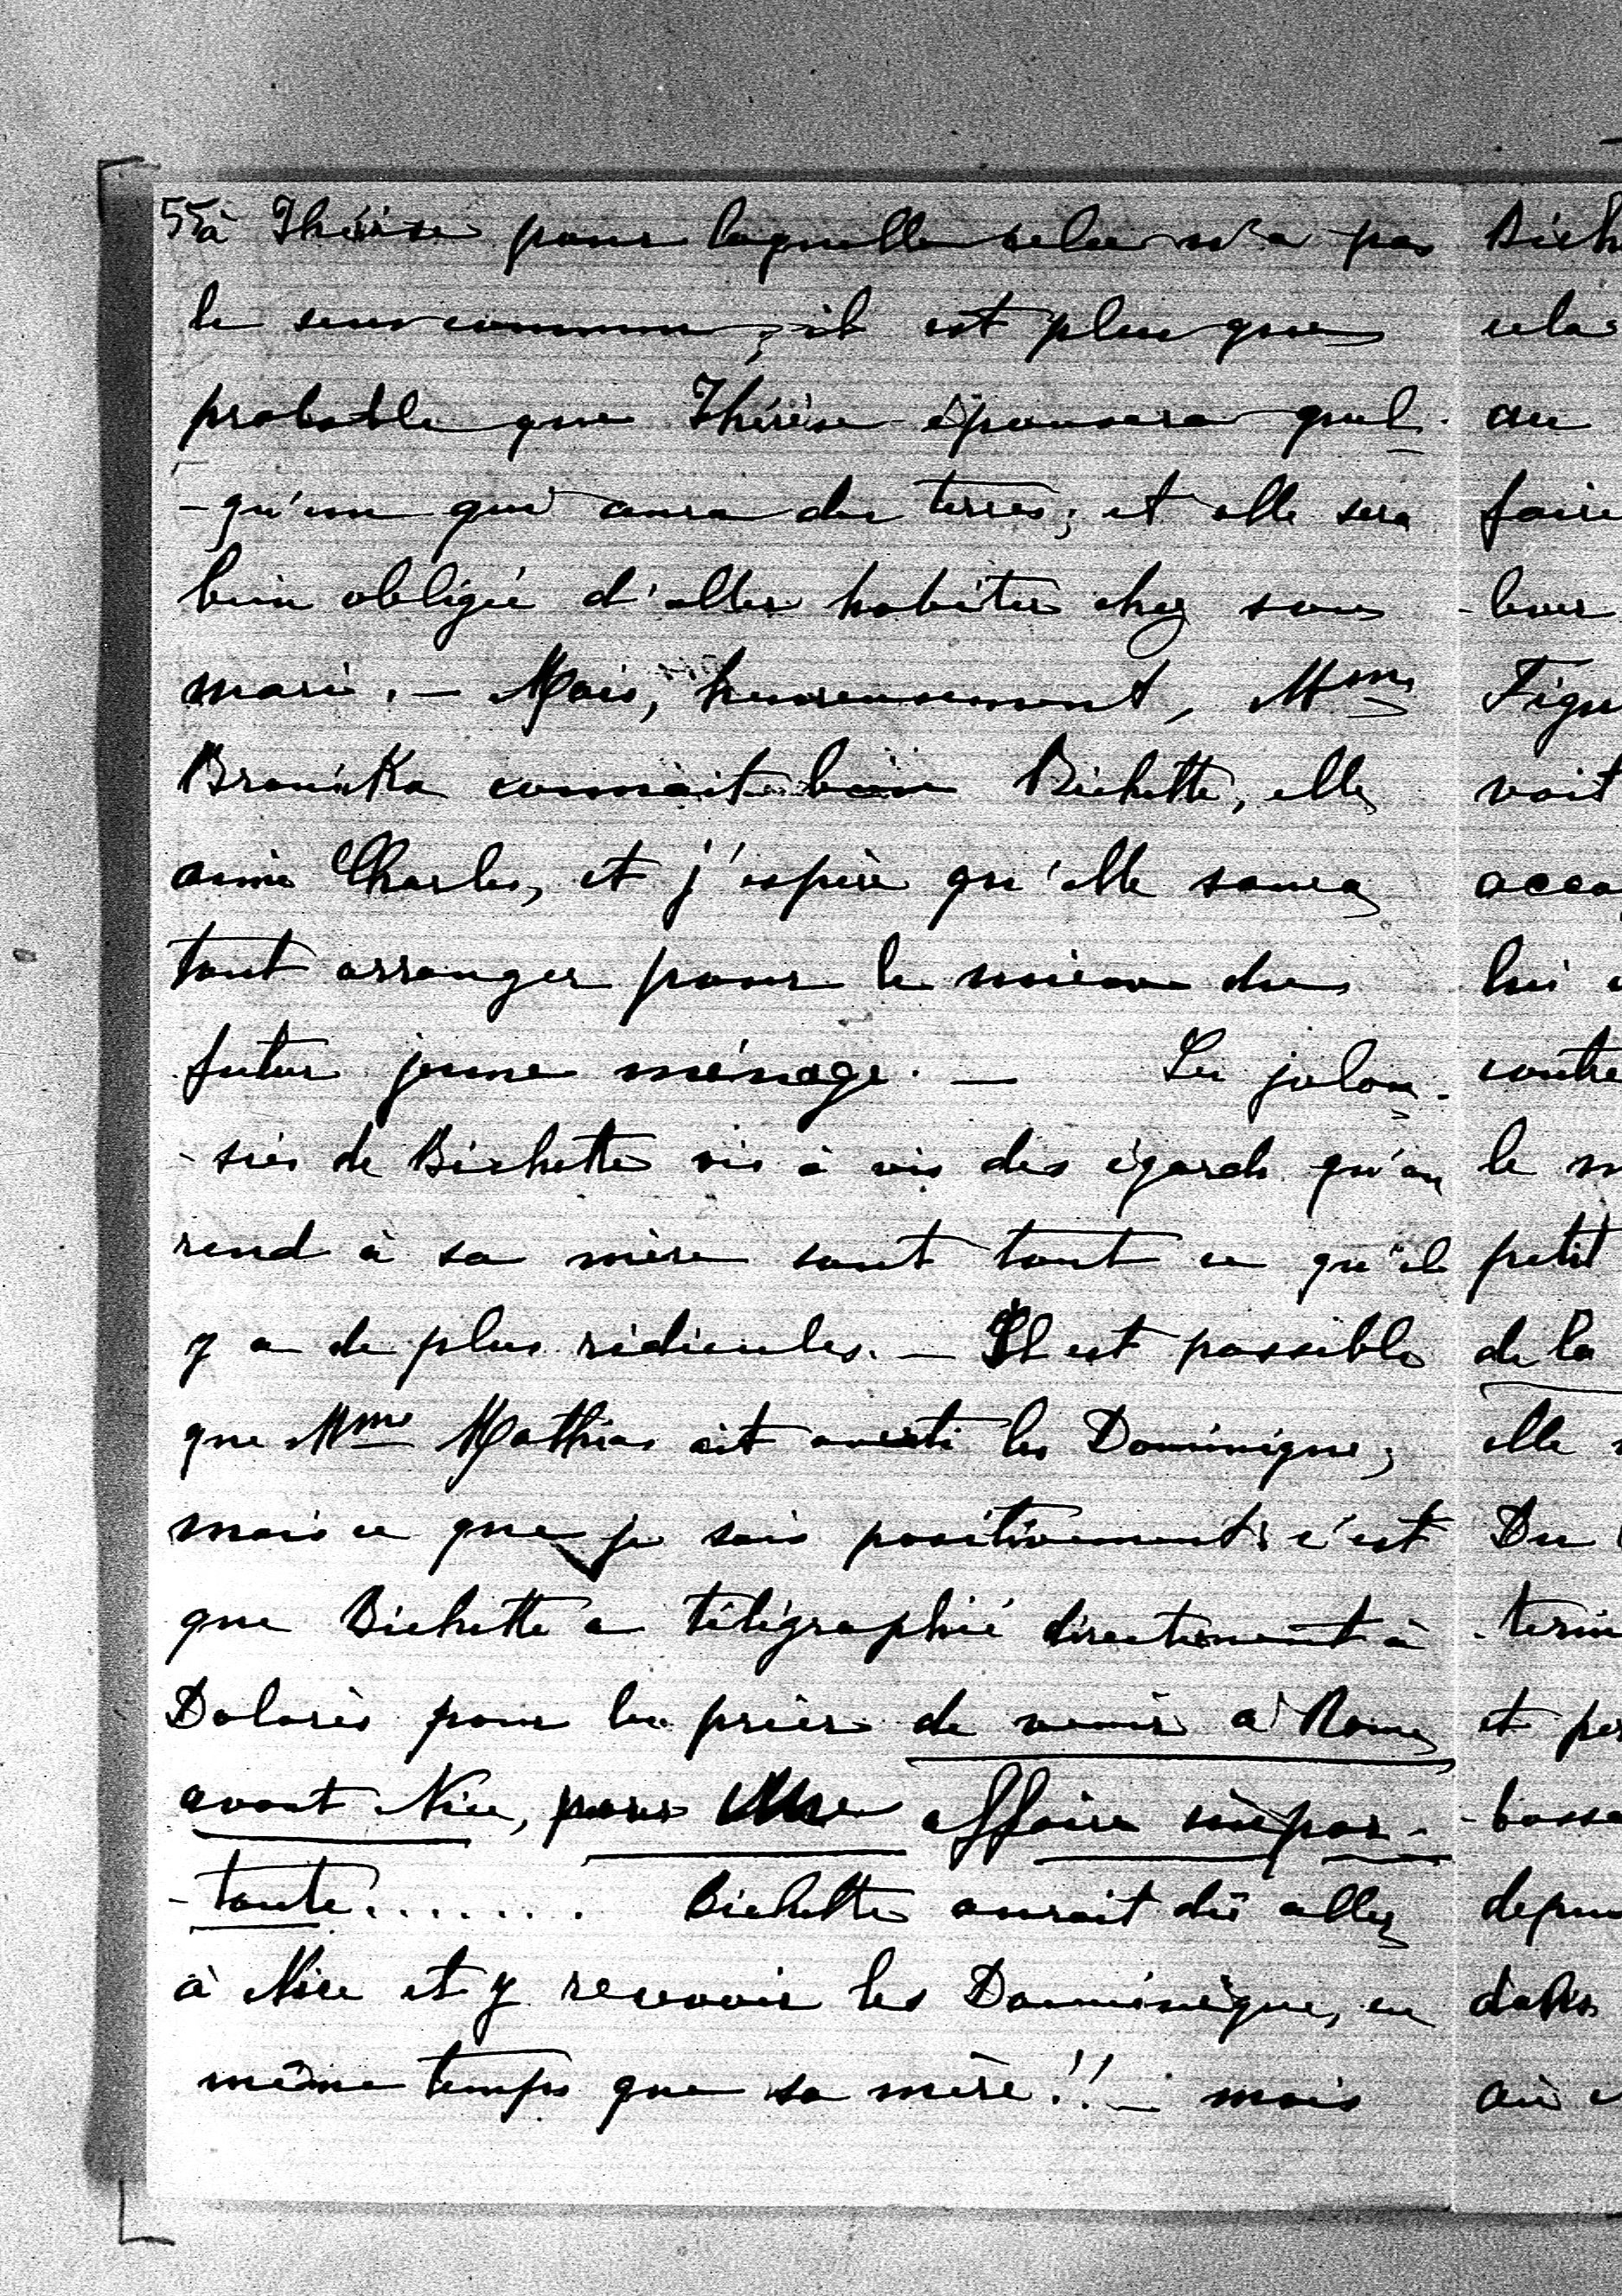 55
à Thérèse pour laquelle cela n'a pas
le sens commun ; il est plus que
probable que Thérèse épousera quel-
-qu'un qui aura des terres ; et elle sera
bien obligée d'aller habiter chez son
mari. — Mais, heureusement, Mme
Branicka connait bien Bichette, elle
aime Charles, et j'espère qu'elle saura
tout arranger pour le mieux du
futur jeune ménage. — Les jalou-
-sies de Bichette vis à vis des égards qu'on
rend à sa mère sont tout ce qu'il
y a de plus ridicules. — Il est possible
que Mme Mathias ait averti les Dominique ;
mais ce que je sais positivement, c'est
que Bichette a télégraphié directement à
Dolorès pour la prier de venir à Rome
avant Nice, pour une affaire impor-
-tante........ Bichette aurait dû aller
à Nice et y recevoir les Dominique, en
même temps que sa mère !! — mais
Bich
cela
au
faire
-leur
Figu
voit
acco
lui
contre
le m
petit
de la
elle
Du
-term
et pe
-bosse
depu
dahs
où